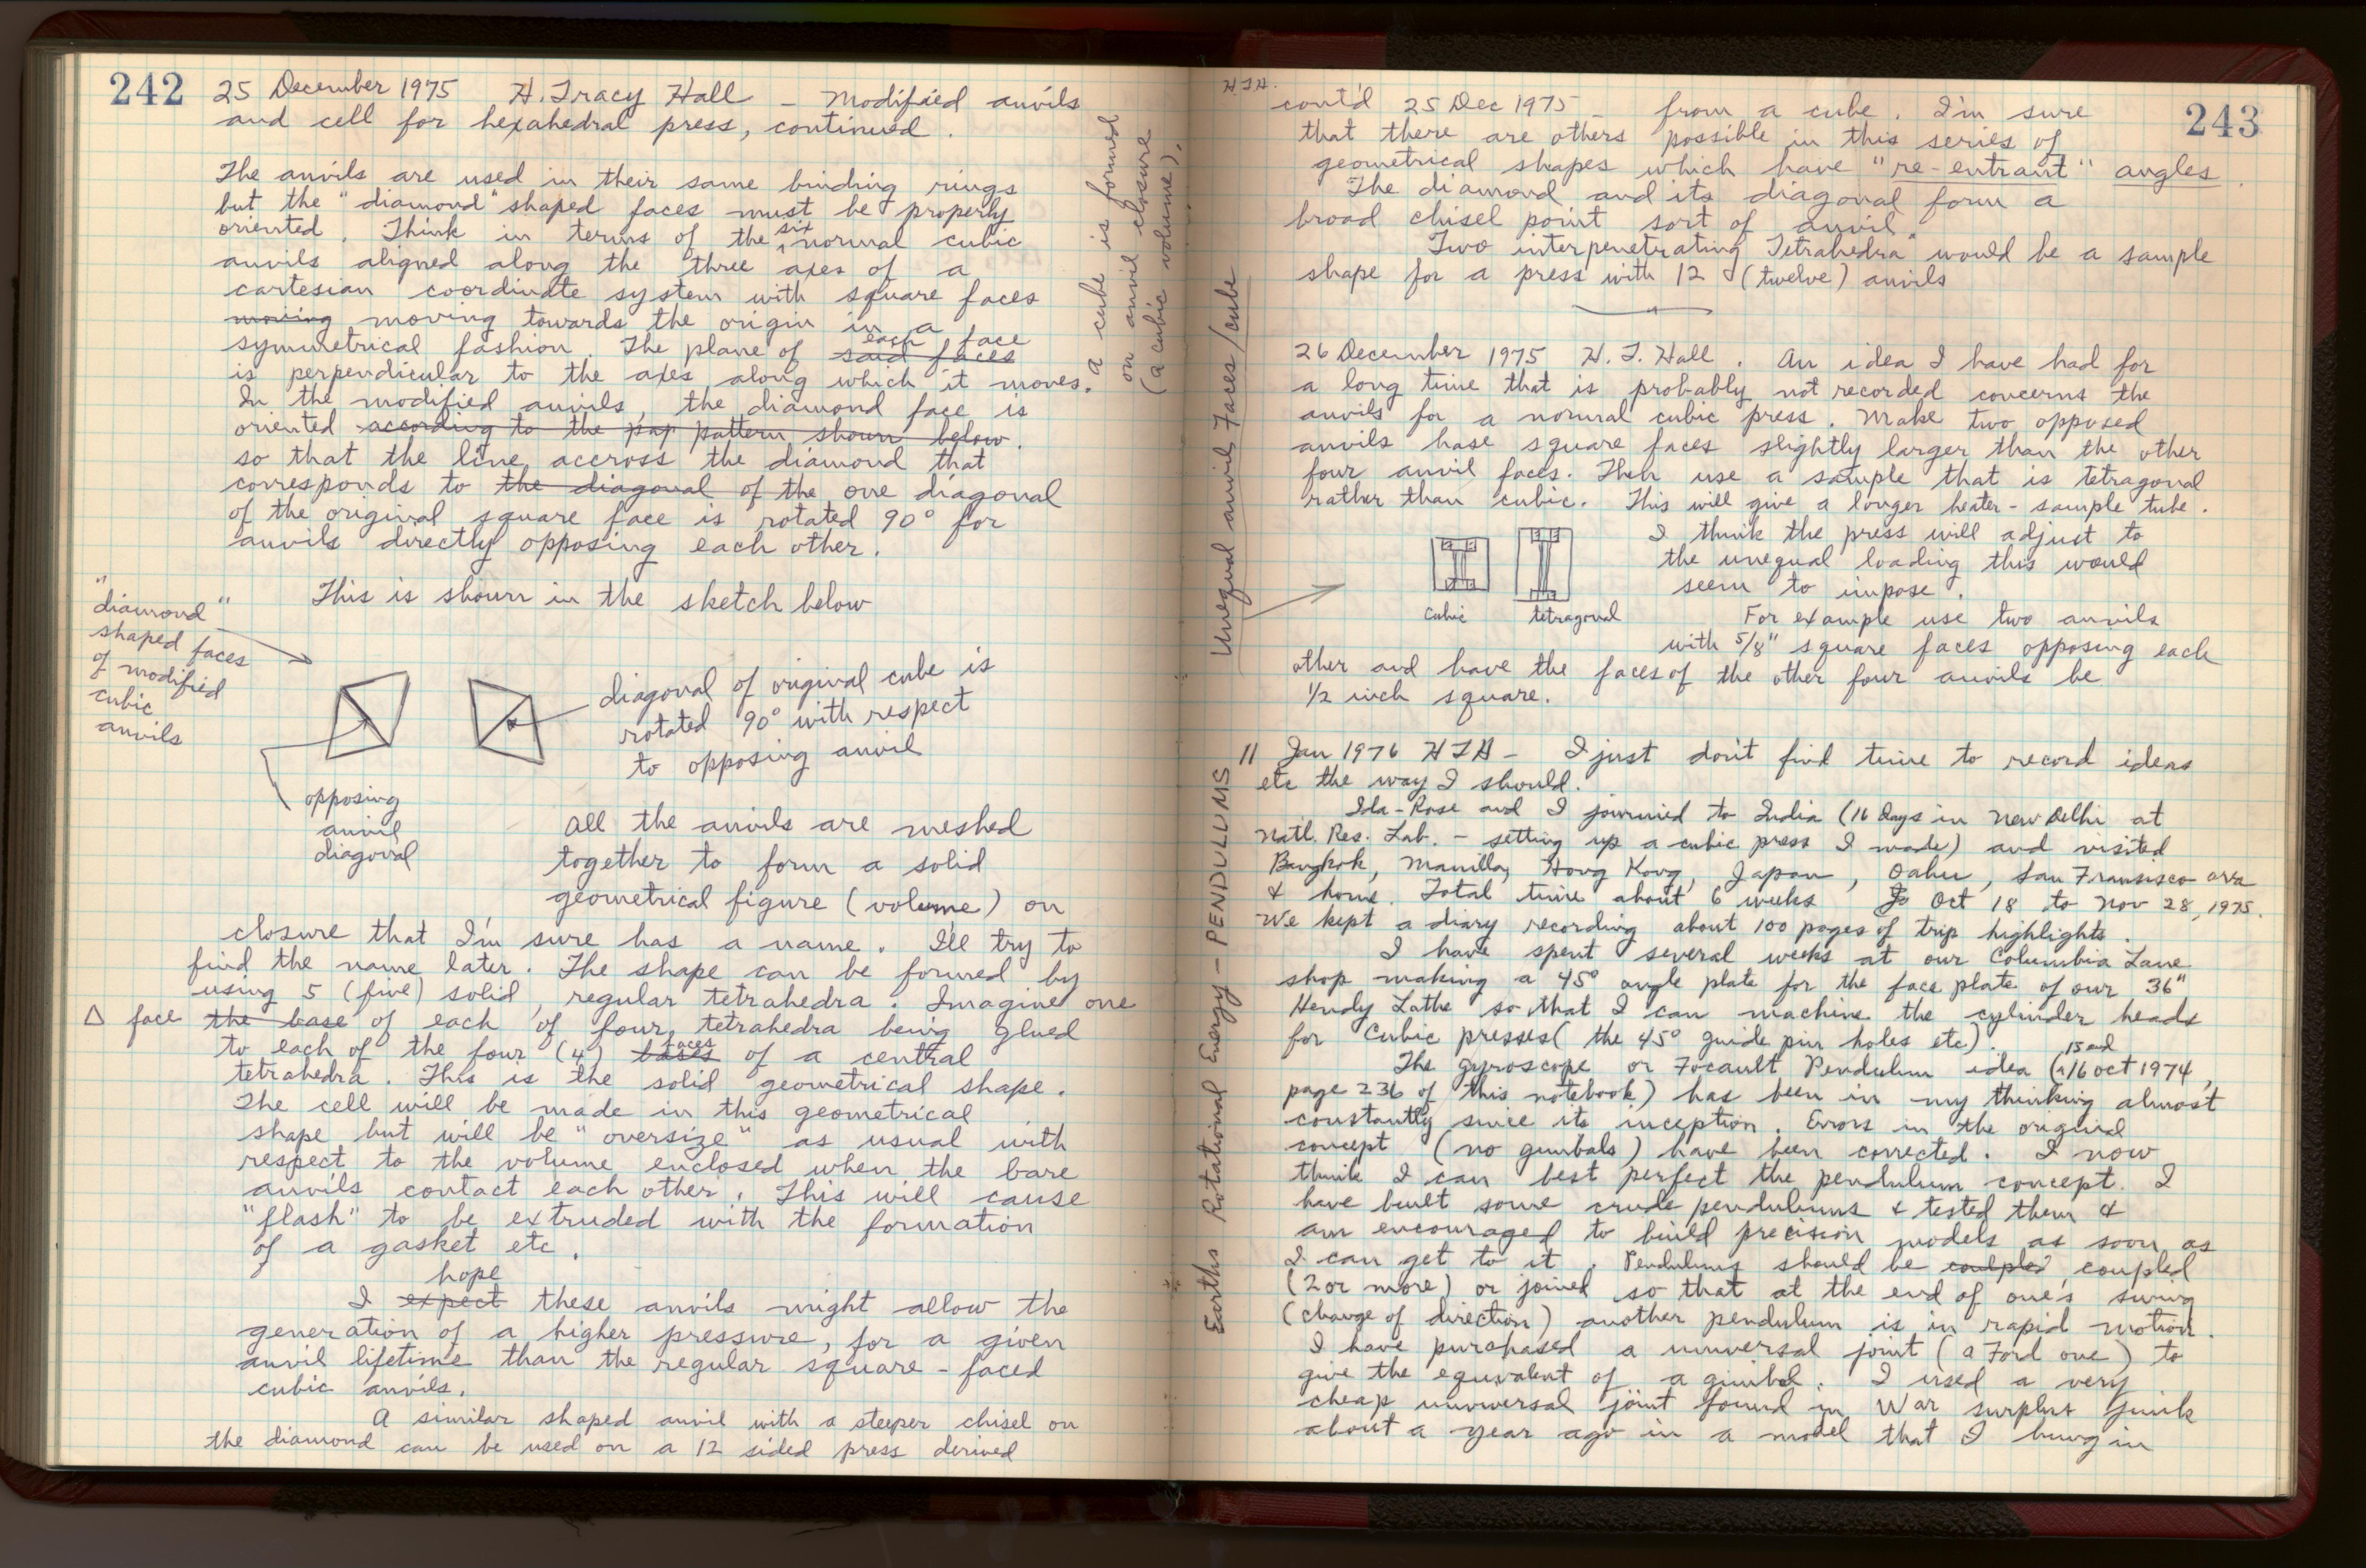 242
25 December 1975 H. Tracy Hall - Modified anvils
and cell for hexahedral press, continued.
The anvils are used in their same binding rings
but the "diamond" shaped faces must be properly
oriented. Think in terms of the six normal cubic
anvils aligned along the three axes of a
cartesian coordinate system with square faces
moving moving towards the origin in a
symmetrical fashion. The plane of said faces each face
is perpendicular to the axes along which it moves.
In the modified anvils, the diamond face is
oriented according to the pap pattern shown below.
so that the line accross the diamond that
corresponds to the diagonal of the one diagonal
of the original square face is rotated 90° for
anvils directly opposing each other.
A cube is formed
on anvil closure
(a cubic volume).
This is shown in the sketch below
"diamond"
shaped faces
of modified
cubic
anvils
diagonal of original cube is
rotated 90° with respect
to opposing anvil
opposing
anvil
diagonal
All the anvils are meshed
together to form a solid
geometrical figure (volume) on
closure that I'm sure has a name. I'll try to
find the name later. The shape can be formed by
using 5 (five) solid, regular tetrahedra. Imagine one
Δ face the base of each of four tetrahedra being glued
to each of the four (4) bases faces of a central
tetrahedra. This is the solid geometrical shape.
The cell will be made in this geometrical
shape but will be "oversize" as usual with
respect to the volume enclosed when the bare
anvils contact each other. This will cause
"flash" to be extruded with the formation
of a gasket etc.
I expect hope these anvils might allow the
generation of a higher pressure, for a given
anvil lifetime than the regular square-faced
cubic anvils.
A similar shaped anvil with a steeper chisel on
the diamond can be used on a 12 sided press derived
H.T.H.
243
cont'd 25 Dec 1975 - from a cube. I'm sure
that there are others possible in this series of
geometrical shapes which have "re-entrant" angles.
The diamond and its diagonal form a
broad chisel point sort of anvil.
"Two interpenetrating Tetrahedra" would be a sample
shape for a press with 12 (twelve) anvils
Unequal anvil Faces/cube
26 December 1975 H. T. Hall. An idea I have had for
a long time that is probably not recorded concerns the
anvils for a normal cubic press. Make two opposed
anvils have square faces slightly larger than the other
four anvil faces. Then use a sample that is tetragonal
rather than cubic. This will give a longer heater-sample tube.
I think the press will adjust to
the unequal loading this would
seem to impose.
cubic tetragonal
For example use two anvils
with 5/8" square faces opposing each
other and have the faces of the other four anvils be
1/2 inch square.
Earths Rotational Energy - PENDULUMS
11 Jan 1976 HTH - I just don't find time to record ideas
etc the way I should.
Ida-Rose and I journied to India (16 Days in New Delhi at
Natl. Res. Lab. - setting up a cubic press I made) and visited
Bangkok, Manilla, Hong Kong, Japan, Oahu, San Fransisco area
& home. Total time about 6 weeks Oct 18 to Nov 28, 1975.
We kept a diary recording about 100 pages of trip highlights.
I have spent several weeks at our Columbia Lane
shop making a 45° angle plate for the face plate of our 36"
Hendy Lathe so that I can machine the cylinder heads
for cubic presses (the 45° guide pin holes etc).
The gyroscope or Focault Pendulum idea (15 and 16 Oct 1974,
page 236 of this notebook) has been in my thinking almost
constantly since its inception. Errors in the original
concept (no gimbals) have been corrected. I now
think I can best perfect the pendulum concept. I
have built some crude pendulums & tested them &
am encouraged to build precision models as soon as
I can get to it. Pendulums should be coulpled, coupled
(2 or more) or joined so that at the end of one's swing
(change of direction) another pendulum is in rapid motion.
I have purchased a universal joint (a Ford one) to
give the equivalent of a gimbal. I used a very
cheap universal joint found in War surplus junk
about a year ago in a model that I hung in